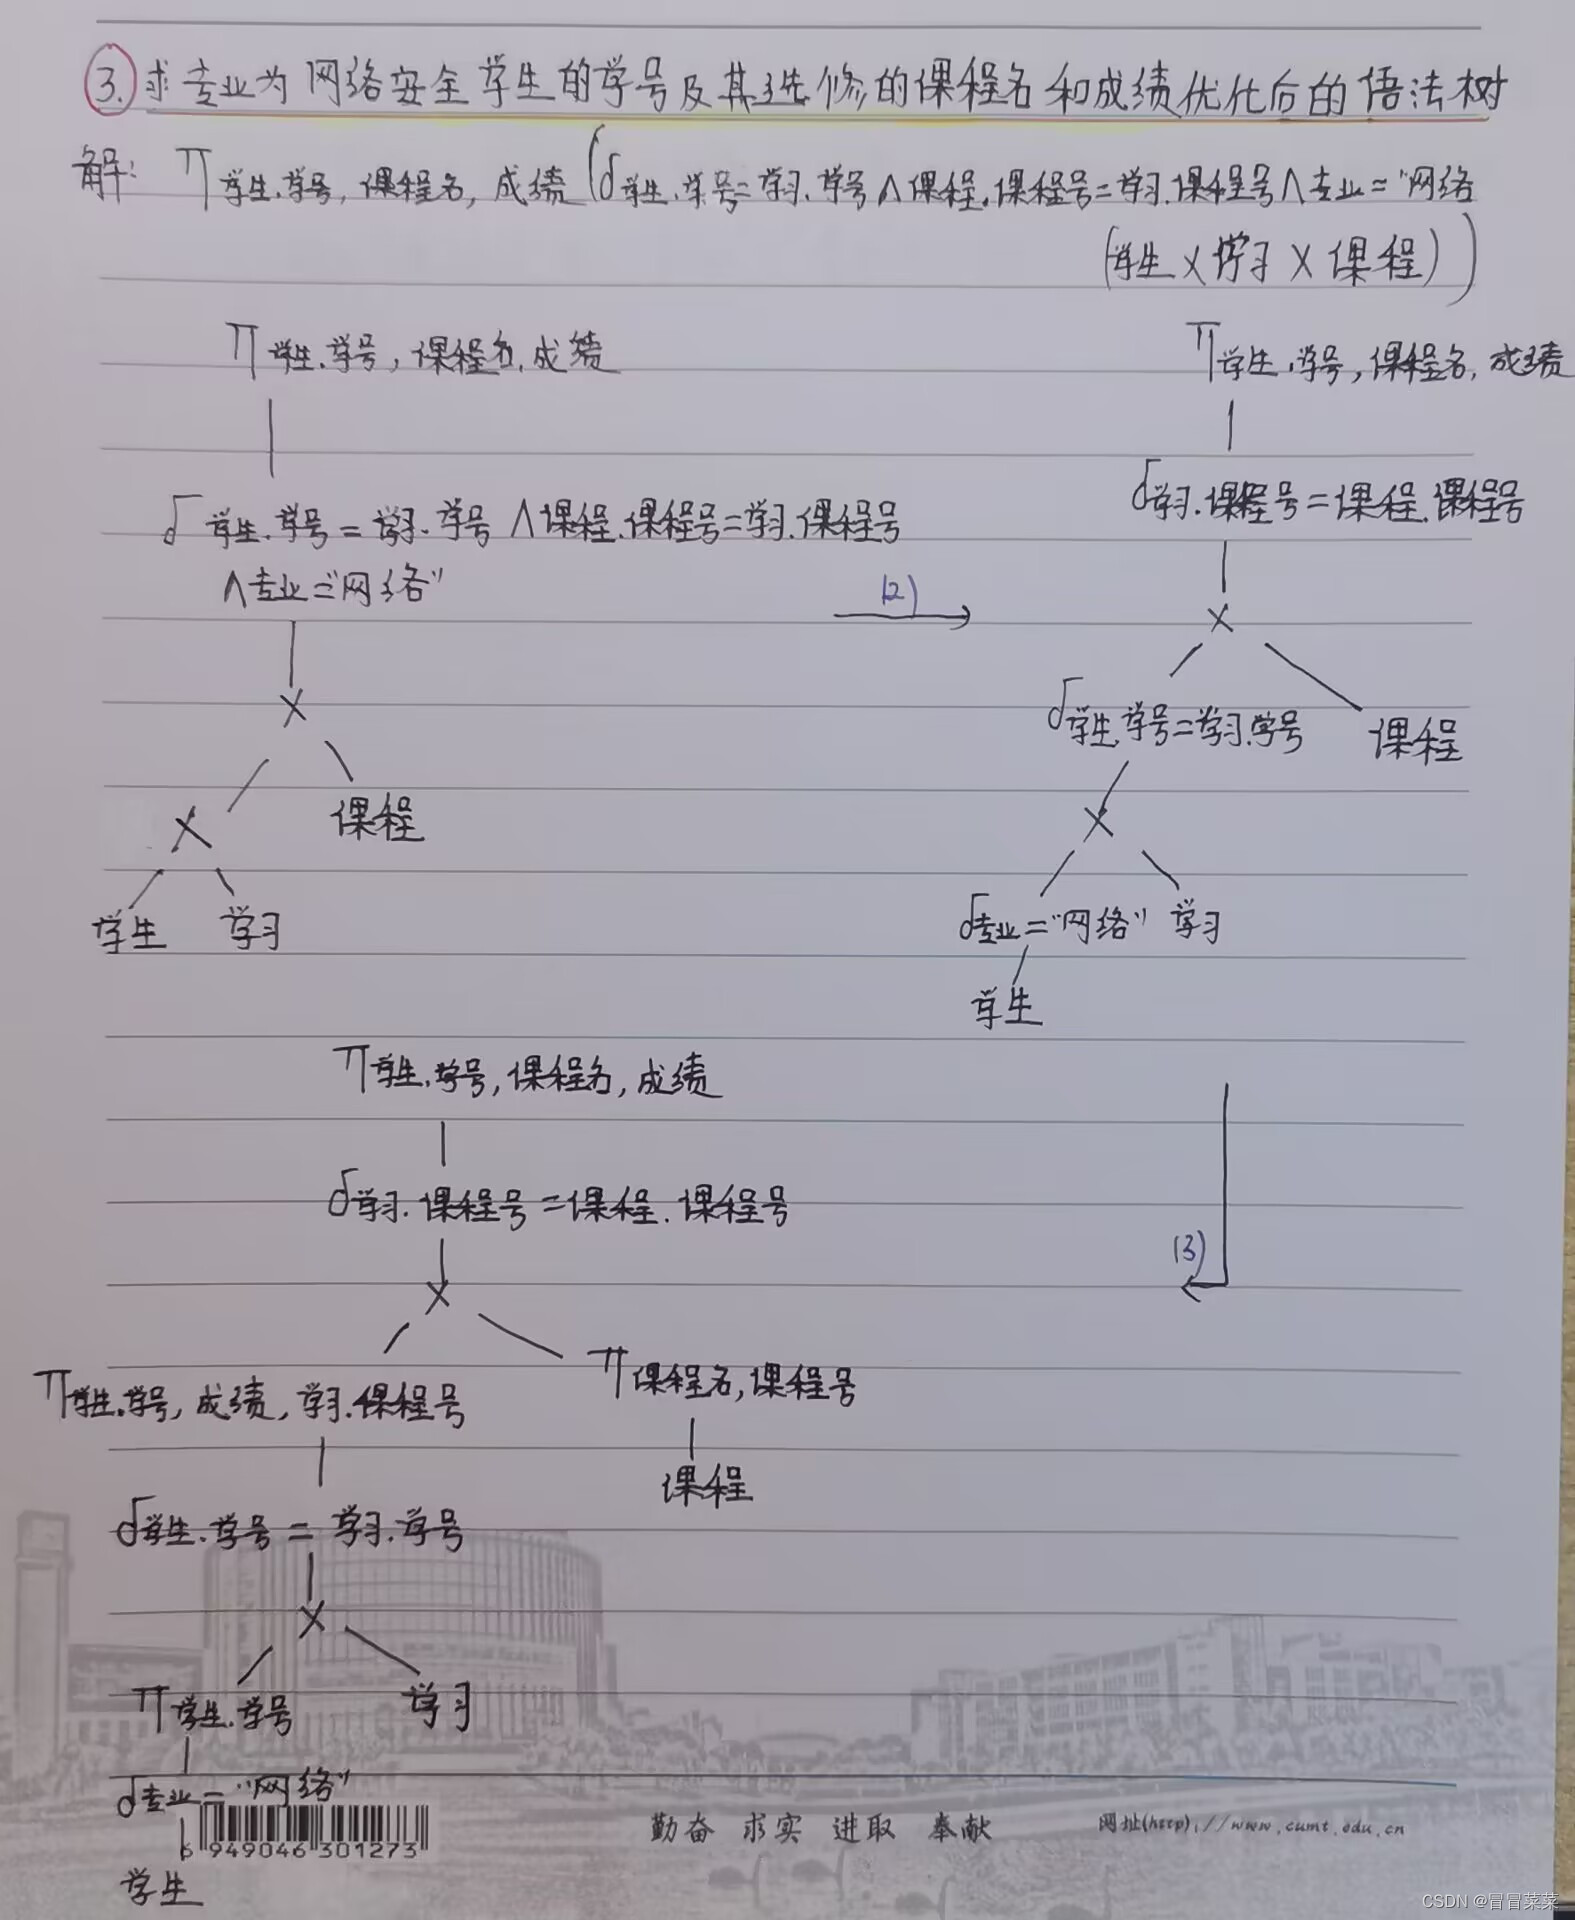 3. 求专业为网络安全学生的学号及其选修的课程名和成绩优化后的语法树
解: π学生.学号, 课程名, 成绩 (σ学生.学号=学习.学号∧课程.课程号=学习.课程号∧专业="网络
(学生×学习×课程))
π学生.学号, 课程名, 成绩
π学生.学号, 课程名, 成绩
σ学生.学号=学习.学号∧课程.课程号=学习.课程号
∧专业="网络"
σ学习.课程号=课程.课程号
(2)
×
×
σ学生.学号=学习.学号 课程
× 课程
×
学生 学习
σ专业="网络" 学习
学生
π学生.学号, 课程名, 成绩
σ学习.课程号=课程.课程号
(3)
×
π学生.学号, 成绩, 学习.课程号 π课程名, 课程号
课程
σ学生.学号=学习.学号
×
π学生.学号 学习
σ专业="网络"
6 949046 301273
学生
勤奋 求实 进取 奉献 网址(http)://www.cumt.edu.cn
CSDN @冒冒菜菜